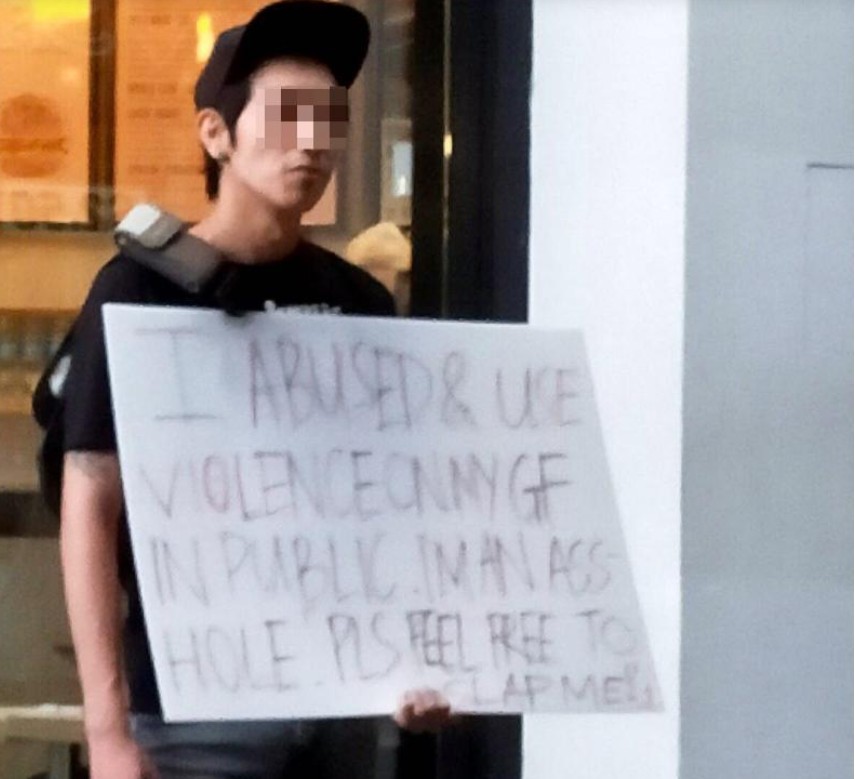 I ABUSED & USE
VIOLENCE ON MY GF
IN PUBLIC. I'M AN ASS-
HOLE. PLS FEEL FREE TO
SLAP ME!!